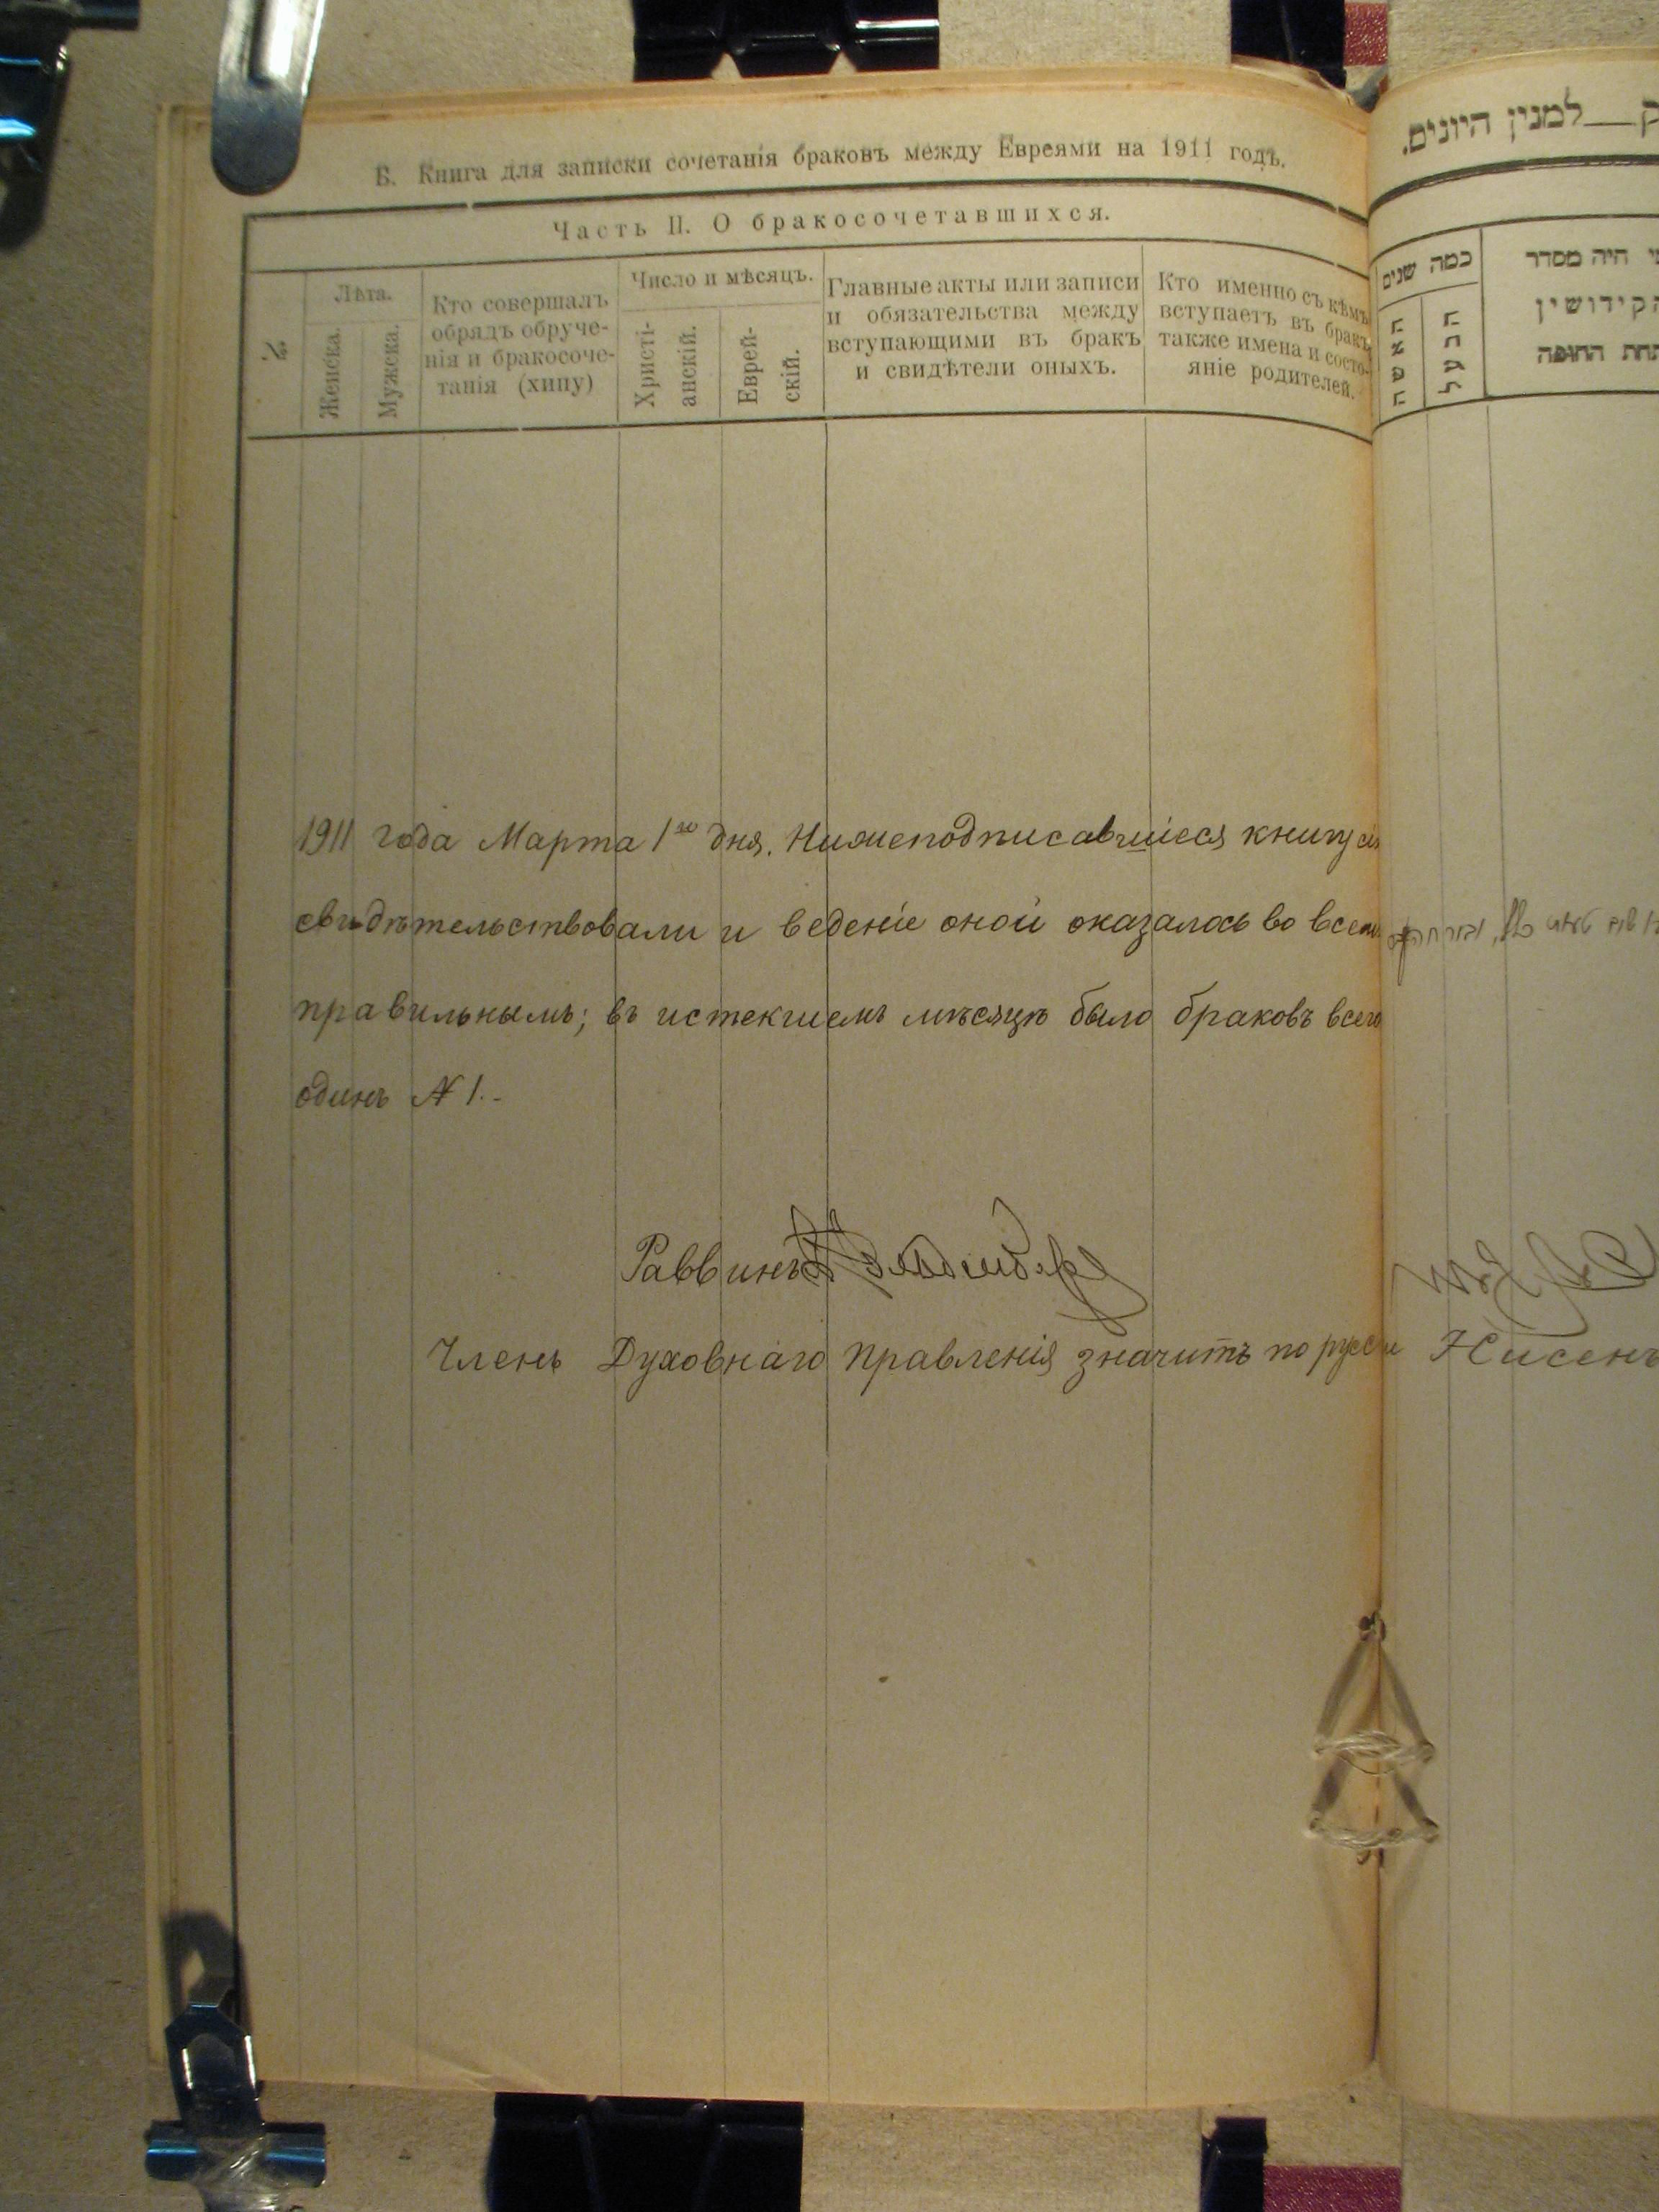 Б. Книга для записки сочетанія браковъ между Евреями на 1911 годъ.
Часть II. О бракосочетавшихся.
№
Лѣта.
Женска.
Мужска.
Кто совершалъ
обрядъ обруче-
нія и бракосоче-
танія (хипу)
Число и мѣсяцъ.
Христі-
анскій.
Еврей-
скій.
Главные акты или записи
и обязательства между
вступающими въ бракъ
и свидѣтели оныхъ.
Кто именно съ кѣмъ
вступаетъ въ бракъ,
также имена и состо-
яніе родителей.
1911 года Марта 1го дня. Нижеподписавшіеся книгу сію
свидѣтельствовали и веденіе оной оказалось во всемъ
правильнымъ; въ истекшемъ мѣсяцѣ было браковъ всего
одинъ N 1.-
Раввинъ
Членъ Духовнаго Правленія значитъ по русски Нисенъ
למנין היונים.
כמה שנים
האשה
הבעל
היה מסדר
קידושין
תחת החופה